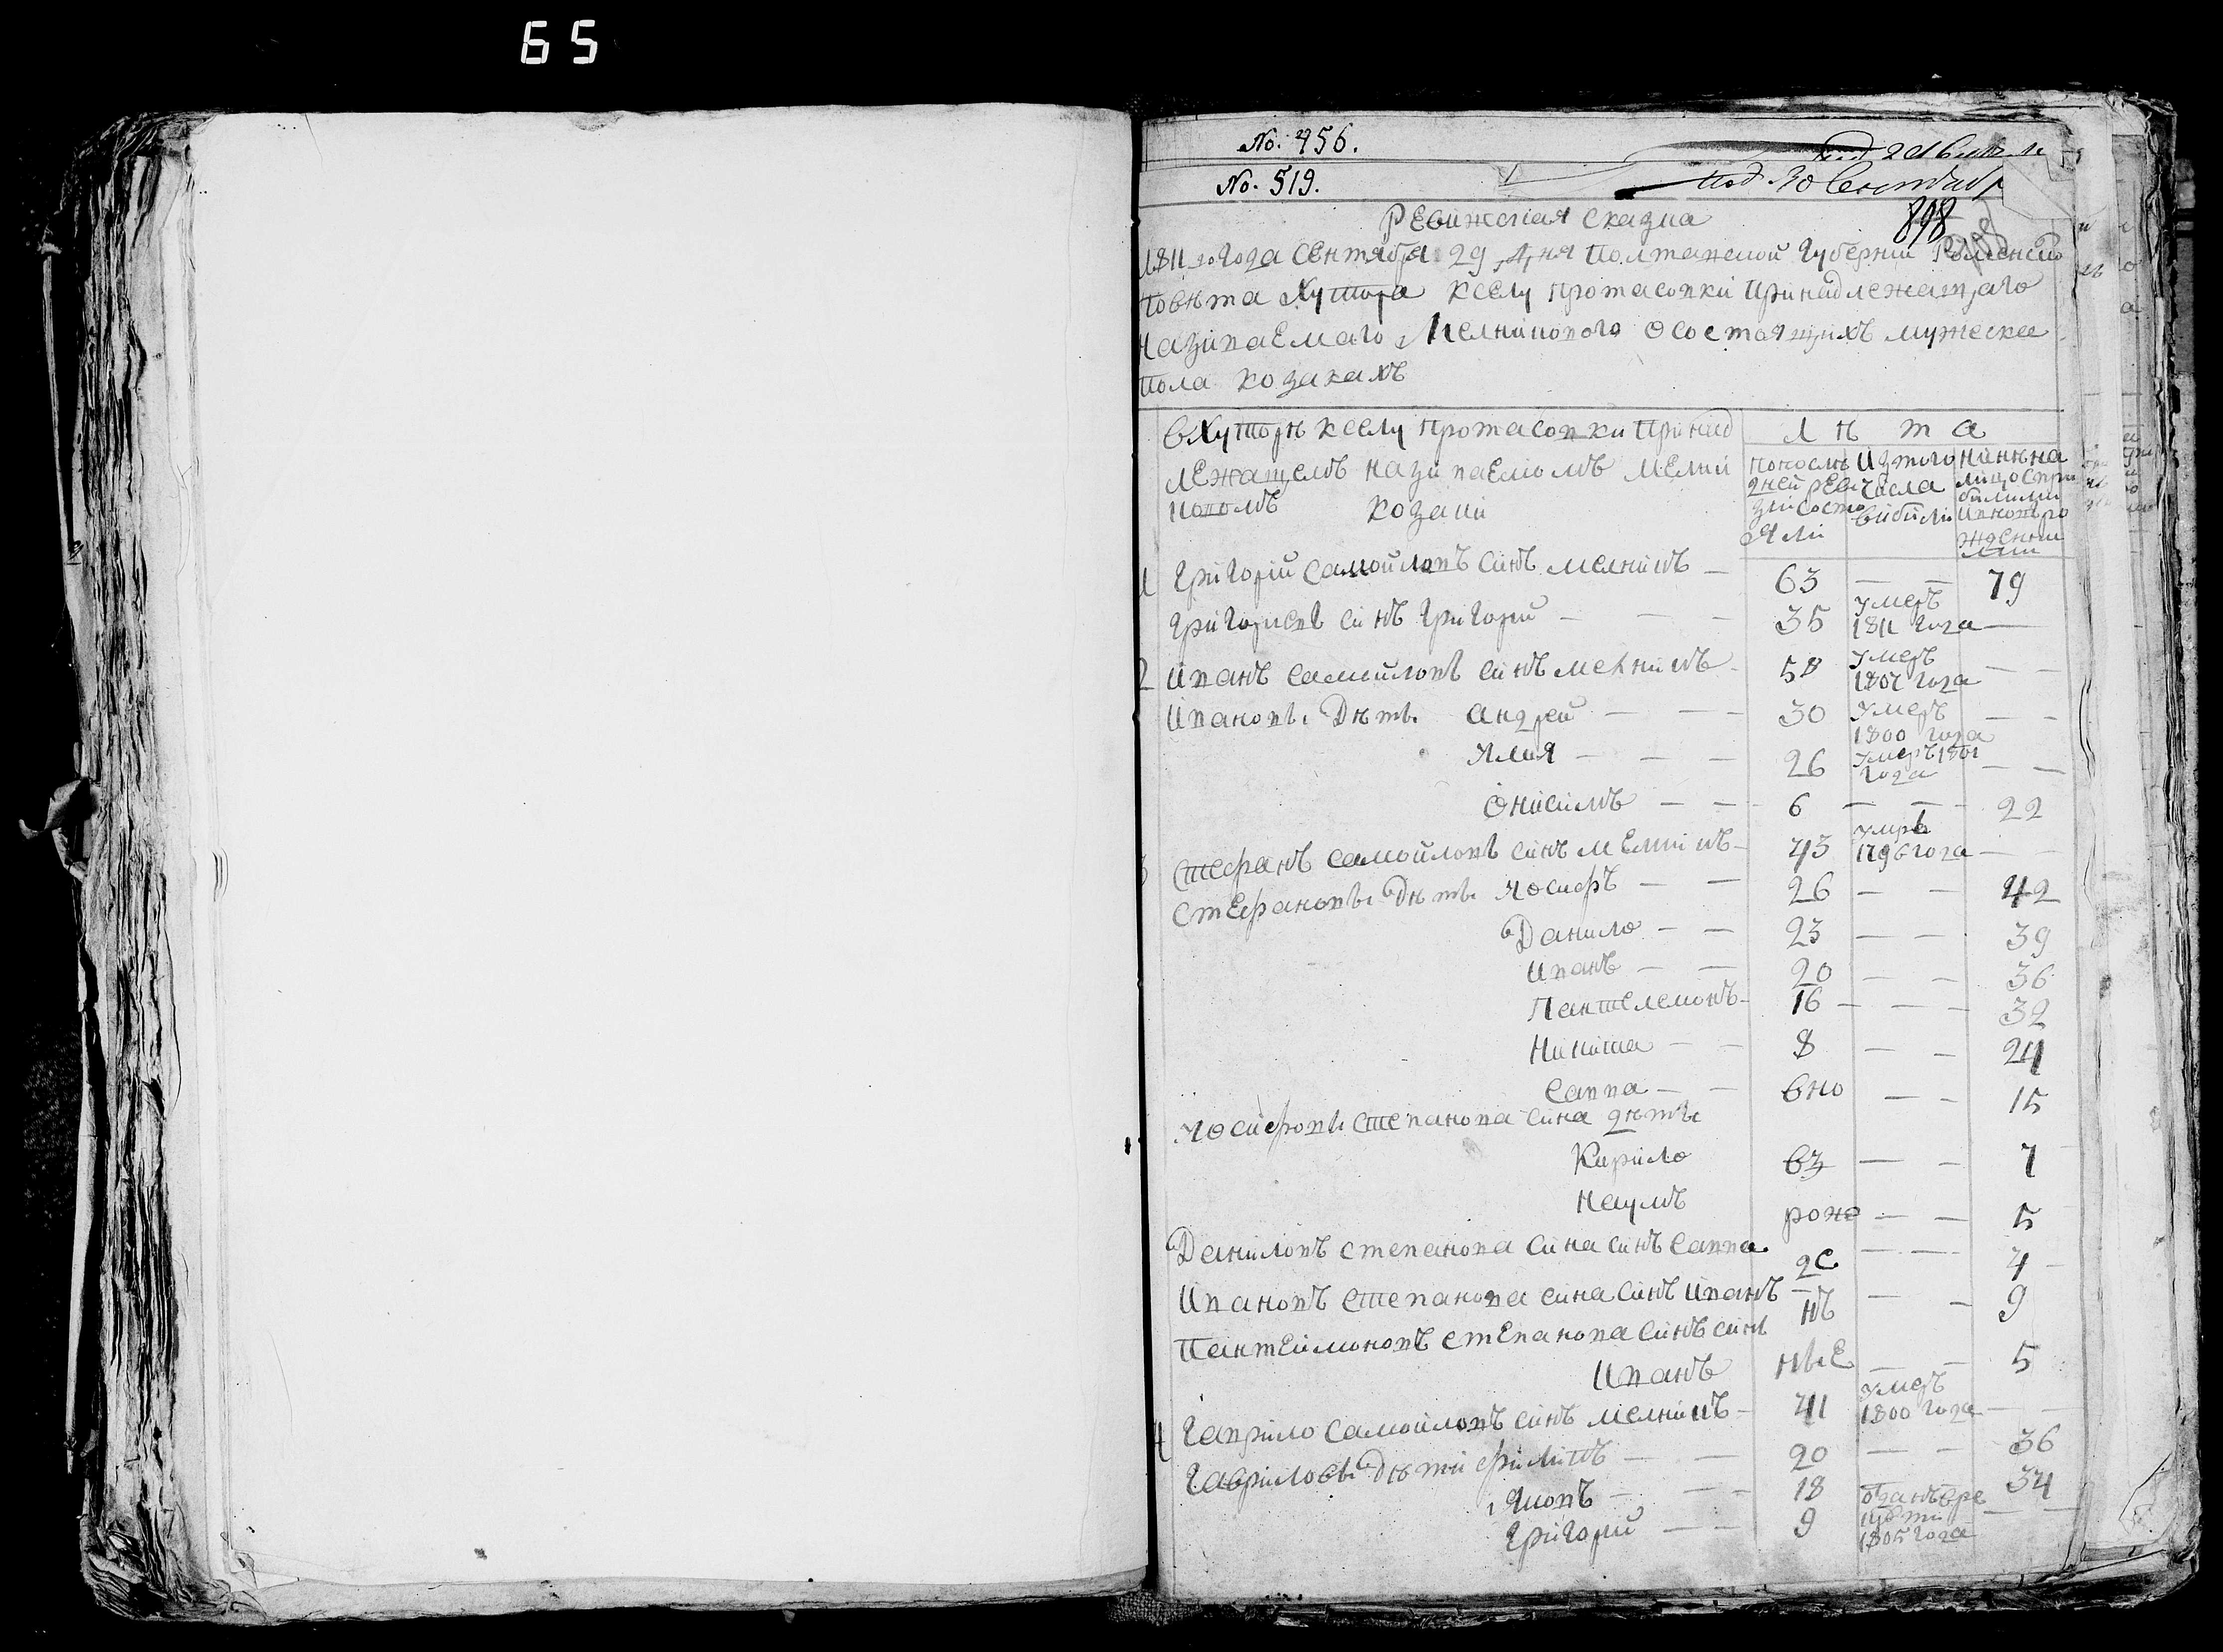 65
No. 456.
No. 519.
под 30 Сентабр
898
Ревижская сказка
1811го Года Сентября 29 дня Полтавской Губернии Роменского
Повѣта Хутора кселу Протасовки Принадлежащаго
Називаемаго Мелникового Осостоящихъ мужеска
Пола козакахъ
вХуторѣ кселу Протасовки Принад
лежащемъ називаемомъ Мелни
ковомъ козаки
Лѣта
Попослѣ
дней реви
зіи состо
яли
Изтого
числа
вибили
Нинѣ на
лицо спри
билими
и вновь ро
жденни
ми
1 Григорій Самойловъ синъ Мелникъ — 63 — — 79
Григориевъ синъ Григорій — — — 35 Умеръ 1811 года —
2 Иванъ Самойловъ синъ Мелникъ — 58 Умеръ 1807 года — —
Ивановы Дѣты Андрей — — — 30 Умеръ 1800 года — —
Яков — — — 26 Умеръ 1801 года — —
Онисимъ — — 6 — — 22
3 Стефанъ Самойловъ синъ Мелникъ — 43 Умръ 1796 года — —
Стефановы Дѣты Иосифъ — — 26 — — 42
Данило — — 23 — — 39
Иванъ — — 20 — — 36
Пантелемонъ — 16 — — — 32
Никита — — 8 — — 24
Савва — — вно — — 15
Иосифовы Степанова сина дѣты
Кирило въ — — 7
Наумъ роже — — 5
Даниловъ Степанова сина синъ Савва 2с — — 4
Ивановъ Степанова сина синъ Иванъ — нъ — — 9
Пантеймоновъ Степанова синъ синъ
Иванъ ные — — 5
4 Гаврило Самойловъ синъ Мелникъ — 41 Умеръ 1800 года — —
Гавриловы Дѣти Филипъ — — 20 — — 36
Яковъ — — — 18 34
Григорий — — 9 отданъ вре круты 1805 года — —